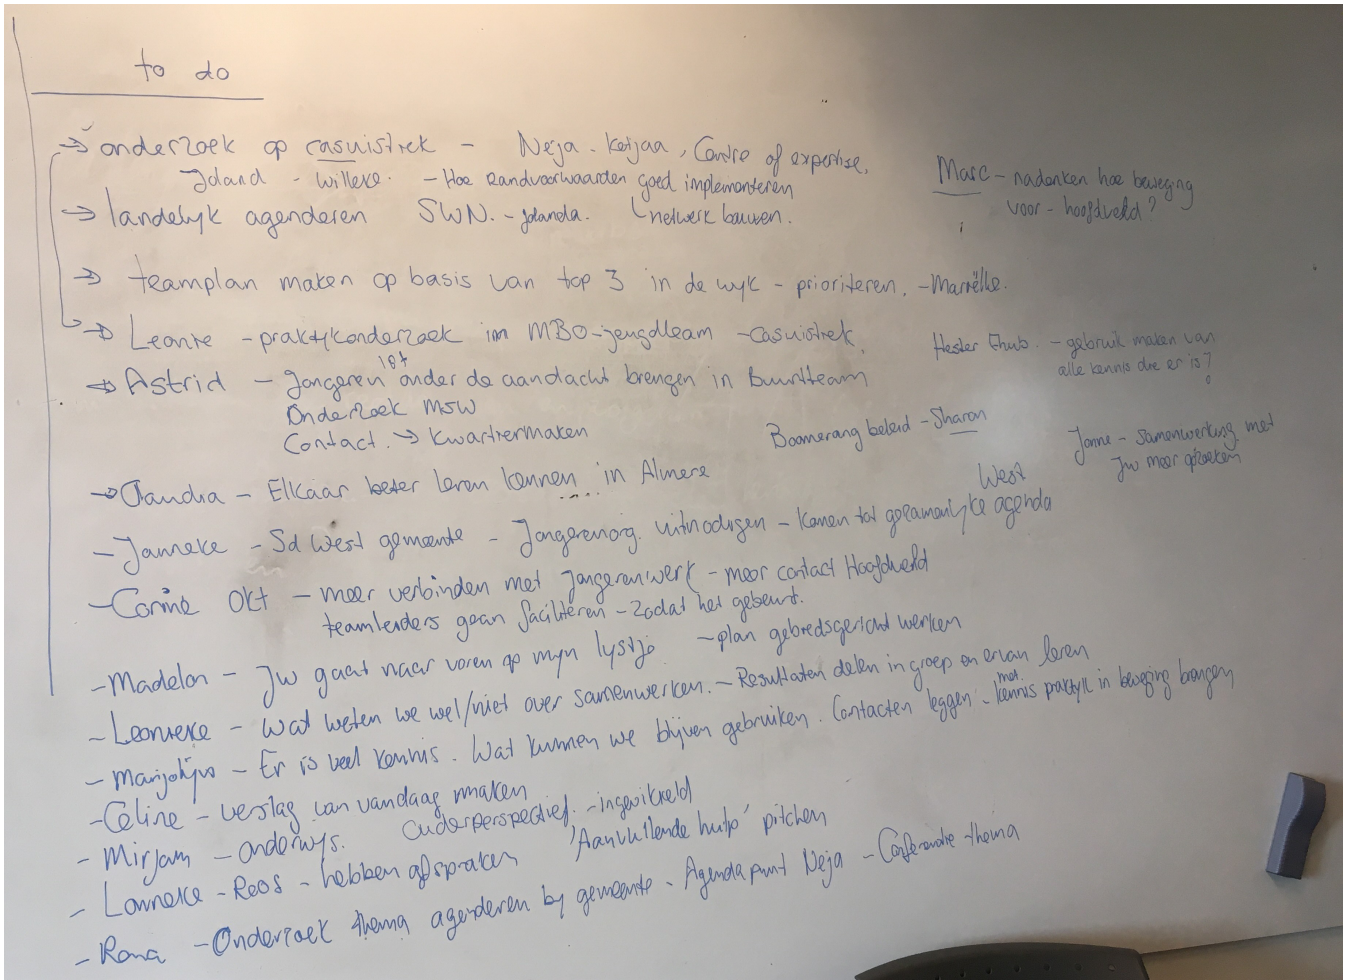 to do
→ onderzoek op casuistiek - Neja - Katjaa, Centre of expertise,
Joland - Willeke. - Hoe Randvoorwaarden goed implementeren
→ landelijk agenderen SWN. - Jolanda. netwerk bouwen.
Marc - nadenken hoe beweging
voor - hoofdveld?
→ teamplan maken op basis van top 3 in de wijk - prioriteren. - Mariëlle.
→ Leonie - praktijkonderzoek im MBO-jeugdteam - casuistiek
Hester - gebruik maken van
alle kennis die er is?
→ Astrid - Jongeren 18+ onder de aandacht brengen in Buurtteam
Onderzoek MSW
Contact. → Kwartiermaken
Boomerang beleid - Sharon
Janne - Samenwerking met
JW meer opzoeken
→ Claudia - Elkaar beter leren kennen in Almere
West
- Janneke - Sd West gemeente - Jongerenorg. uitnodigen - komen tot gezamenlijke agenda
- Corine Okt - meer verbinden met Jongerenwerk - meer contact Hoofdveld
teamleiders gaan faciliteren - zodat het gebeurt.
- Madelon - JW gaat naar voren op mijn lystje - plan gebiedsgericht werken
- Leonieke - Wat weten we wel/niet over samenwerken. - Resultaten delen in groep en ervan leren
- Marjolijn - Er is veel kennis. Wat kunnen we blijven gebruiken. Contacten leggen - met kennis praktijk in beweging brengen
- Celine - verslag van vandaag maken
- Mirjam - onderwijs. Ouderperspectief. - ingewikkeld
- Lonneke - Roos - hebben afspraken 'Aanvullende hulp' pitchen
- Rona - Onderzoek thema agenderen by gemeente. Agendapunt Neja - Conferentie thema